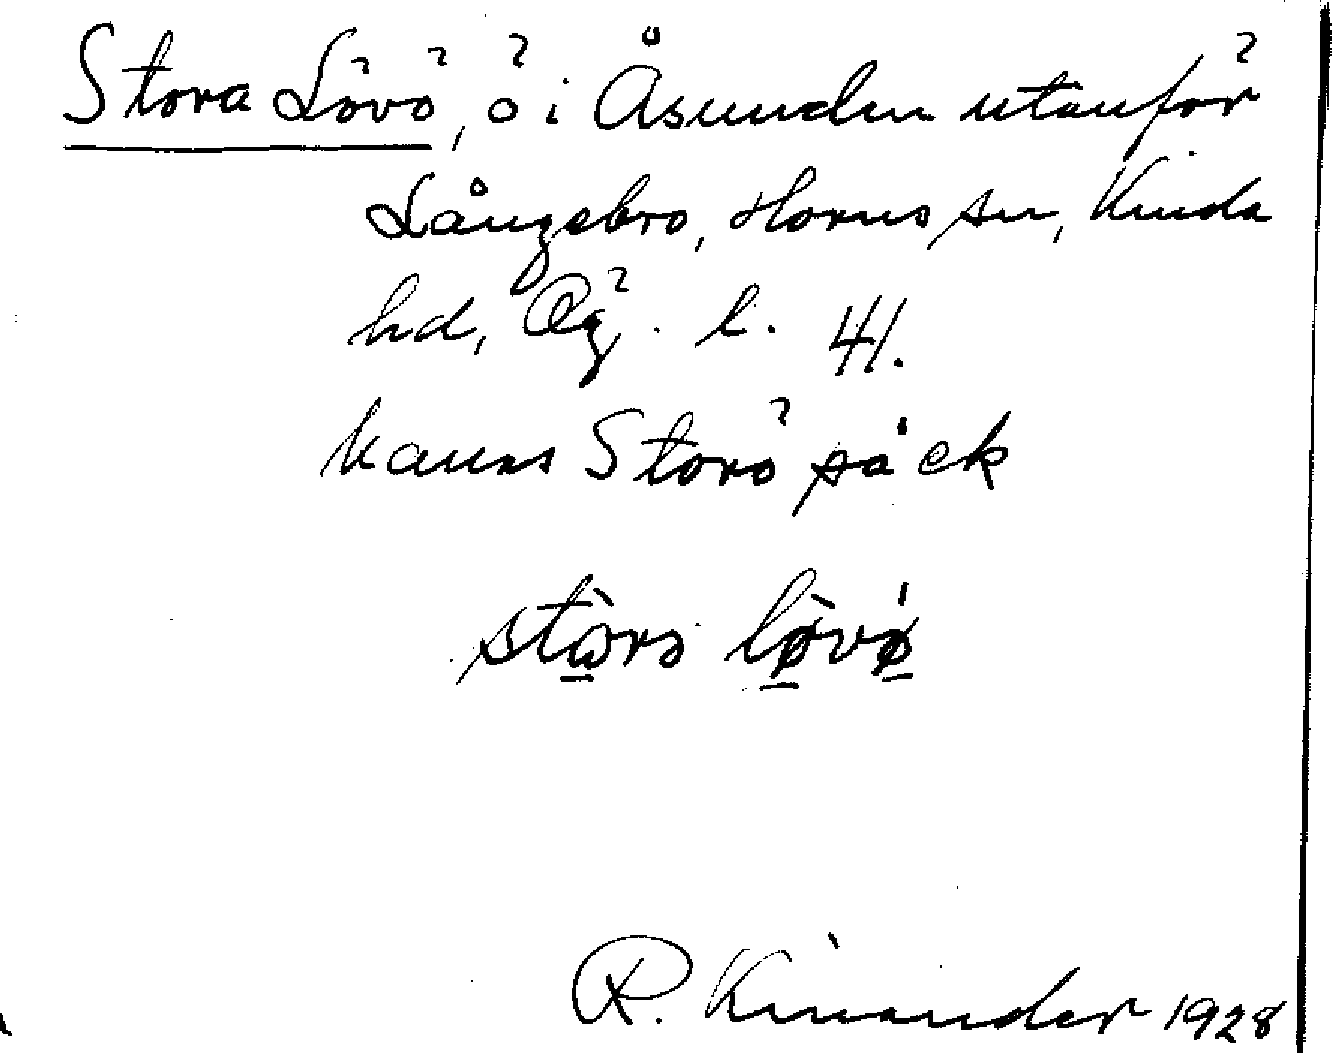 Stora Lövö, ö i Åsunden utanför
Långebro, Horns sn, Kinda
hd, Ög. l. 41.
kanns Storö säck
stòrɔ lø̀vǿ
R. Kinander 1928